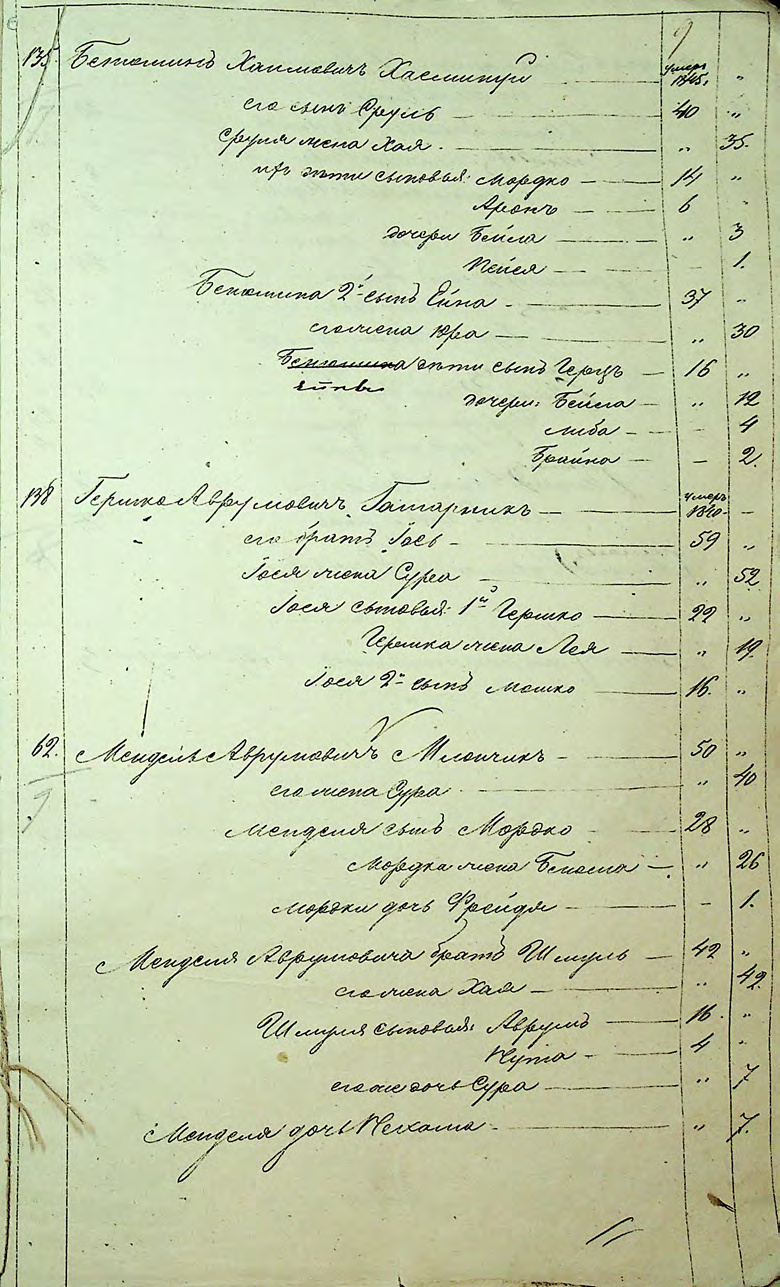 9
135. Бениоминъ Хаимовичъ — умеръ 1845. „
его сынъ Сруль — 40 „
Сруля жена Хая — „ 35.
ихъ дѣти сыновья: Мордко — 14 „
Аронъ — 6 „
дочери Бейла — „ 3
Пейся — – 1.
Бениомина 2й сынъ Ейна — 37 „
его жена Юра — „ 30
Бениомина дѣти сынъ Герцъ — 16 „
Ейны
дочери: Бейла — „ 12
Либа — – 4
Брайна — – 2.
138 Гершко Аврумовичъ Гатарникъ — умеръ 1840. –
его братъ Гось — 59 „
Гося жена Сура — „ 52
Гося сыновья: 1й Гершко — 22 „
Гершка жена Лея — „ 19.
Гося 2й сынъ Мошко — 16. „
62. Мендель Аврумовичъ Млынчикъ — 50 „
его жена Сура — „ 40
Менделя сынъ Мордко — 28 „
Мордка жена — „ 26
Мордки дочь Фрейдя — – 1.
Менделя Аврумовича братъ Шмуль — 42 „
его жена Хая — „ 42.
Шмуля сыновья: Аврумъ — 16. „
Нута — 4 „
его же дочь Сура — „ 7
Менделя дочь Нехама — „ 7.